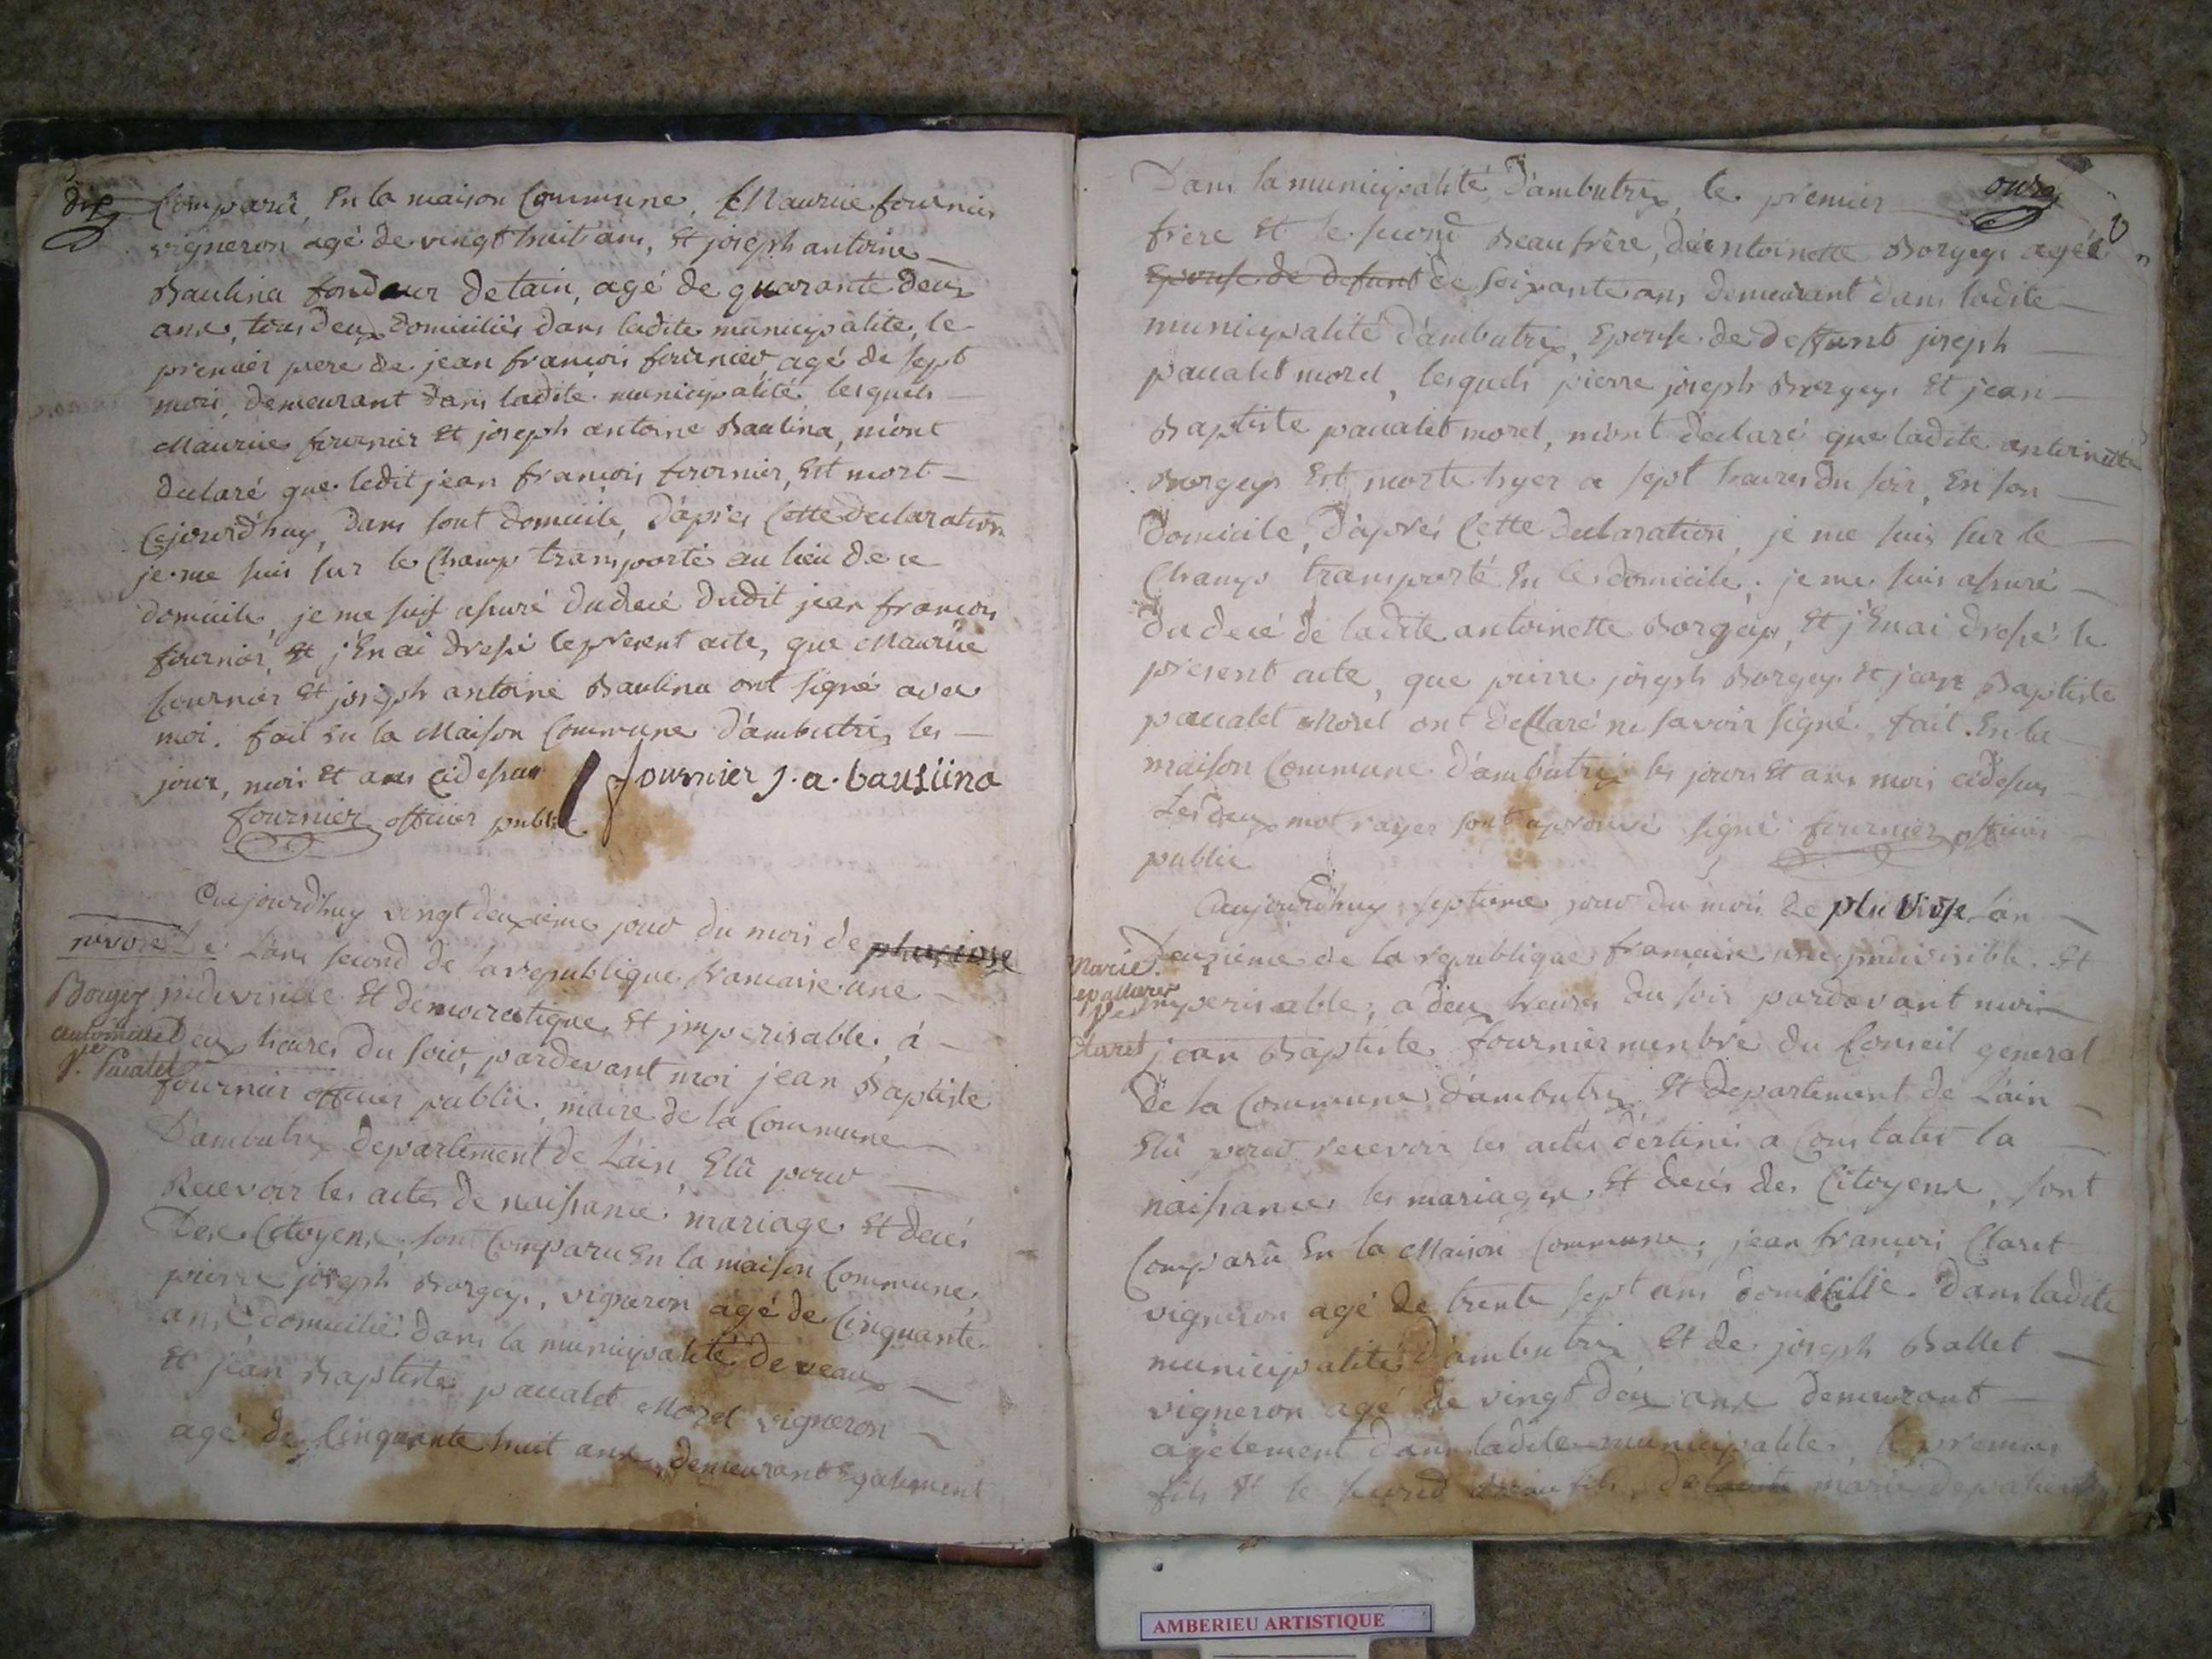 dix
Comparû, En la maison Commune, Maurice fournier
vigneron agé de vingt huit ans, Et joseph antoine
Baulina fondeur detain, agé de quarante deux
ans, tous deux domiciliés dans ladite municipalité, le
premier pere de jean françois fournier, agé de sept
mois, demeurant dans ladite municipalité, lesquels
Maurice fournier Et joseph antoine Baulina, m'ont
declaré que ledit jean françois fournier, Est mort
Cejourd'huy, dans sont domicile, d'après Cette declaration
je me suis sur le Champ transporté au lieu de ce
domicile, je me suis assuré du decé dudit jean françois
fournier, Et j'En ai dressé le present acte, que Maurice
fournier Et joseph antoine Baulina ont signé avec
moi. fait En la Maison Commune d'ambutrix les
jour, mois Et ans cidessus fournier j. a. bauliino
fournier officier public
Aujourdhuy vingt deuxième jour du mois de pluviose
nivose L'an second de la republique francaise une
Borgey indivisible Et democratique, Et jmperisable, à
antoinette Deux heures du soir, pardevant moi jean Baptiste
Ve. Pacalet
fournier officier public, maire de la Commune
D'ambutrix departement de L'ain, Elû pour
Recevoir les actes de naissance, mariage, Et decés
Des Citoyens, sont Comparu En la maison Commune,
pierre joseph Borgey, vigneron agé de Cinquante
ans, domicilié dans la municipalité de veaux
Et jean Baptiste pacalet Morel vigneron
agé de Cinquante huit ans, demeurant Egalement
Dans la municipalité, D'ambutrix, le premier
onze
frère Et le second Beaufrère, d'antoinette Borgey agée
Epouse de defunt de soixante ans, demeurant dans ladite
municipalité d'ambutrix, Epouse de deffunt joseph
pacalet morel, lesquels pierre joseph Borgey Et jean
Baptiste pacalet morel, m'ont déclaré que ladite antoinette
Borgey Est morte hyer a sept heures du soir, En son
Domicile, d'après Cette declaration, je me suis sur le
Champ transporté En ce domicile, je me suis assuré
Du decé de ladite antoinette Borgey, Et j'En ai dressé le
present acte, que pierre joseph Borgey Et jean Baptiste
pacalet Morel ont declaré ne savoir signé. fait En la
maison Commune d'ambutrix les jours Et ans mois cidesus
Les deux mot rayer sont aprouvé signé fournier officier
public
Aujourd'huy septieme jour du mois de pluviose, L'an
Deuxieme de la republique francaise une indivisible. Et
Marie
jmperisable, a deux heures du soir pardevant moi
Claret jean Baptiste fournier membre du Conseil general
De la Commune d'ambutrix Et departement de L'ain
Elû pour recevoir les actes déstinés a Constater la
naissances les mariages, Et decés des Citoyens, sont
Comparû En la Maison Commune, jean françois Claret
vigneron agé de trente sept ans domicilié dans ladite
municipalité d'ambutrix Et de joseph Ballet
vigneron agé de vingt deux ans demeurant
agelement dans ladite municipalité, le premier
fils Et le second
AMBERIEU ARTISTIQUE